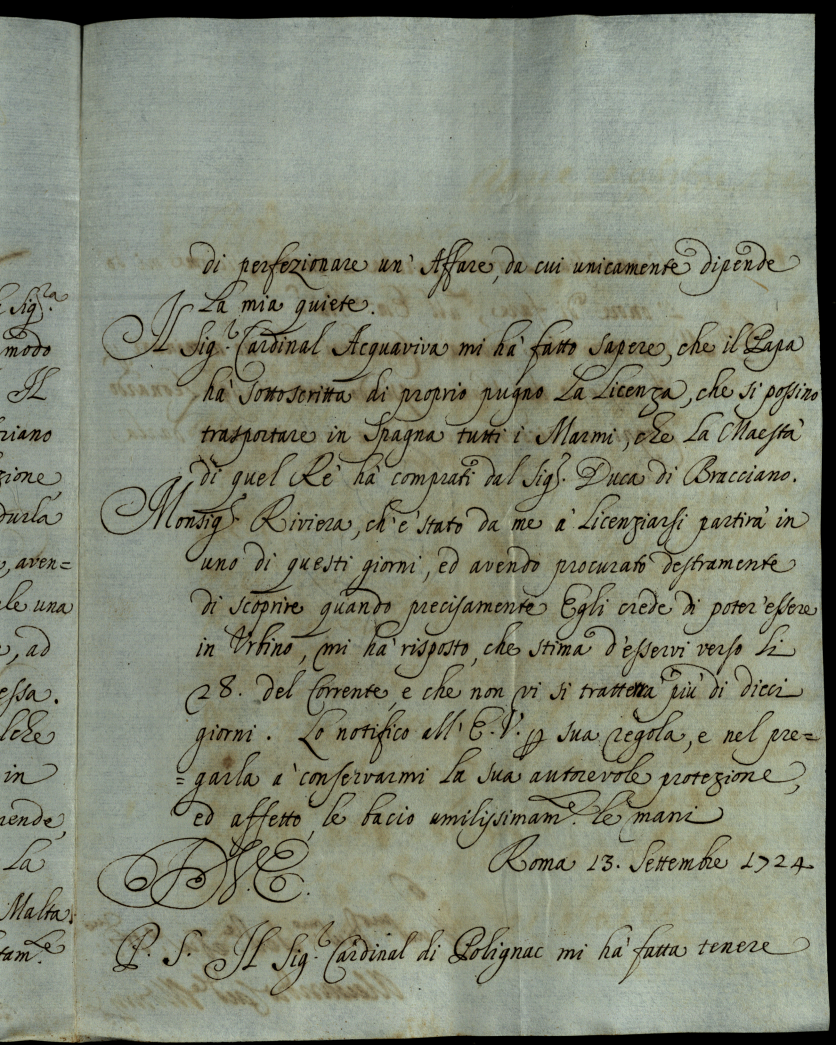 di perfezionare un' Affare, da cui unicamente dipende
la mia quiete.
Il Sig.r Cardinal Acquaviva mi hà fatto sapere, che il Papa
hà sottoscritta di proprio pugno la Licenza, che si possino
trasportare in Spagna tutti i Marmi, che la Maestà
di quel Rè hà comprati dal Sig.r Duca di Bracciano.
Monsig.r Riviera, ch'è stato da me à licenziarsi partirà in
uno di questi giorni, ed avendo procurato destramente
di scoprire quando precisamente Egli crede di poter'essere
in Urbino, mi hà risposto, che stima d'esservi verso li
28. del Corrente, e che non vi si tratterrà più di dieci
giorni. Lo notifico all' E.V. p sua regola, e nel pre=
=garla à conservarmi la sua autorevole protezione,
ed affetto, le bacio umilissimam.te le mani
D.V.E. Roma 13. Settembre 1724
P. S. Il Sig.r Cardinal di Polignac mi hà fatta tenere
Sig.ra
modo
Il
riano
zione
durla
, aven=
le una
, ad
essa.
lche
in
rende,
la
Malta.
tam.te